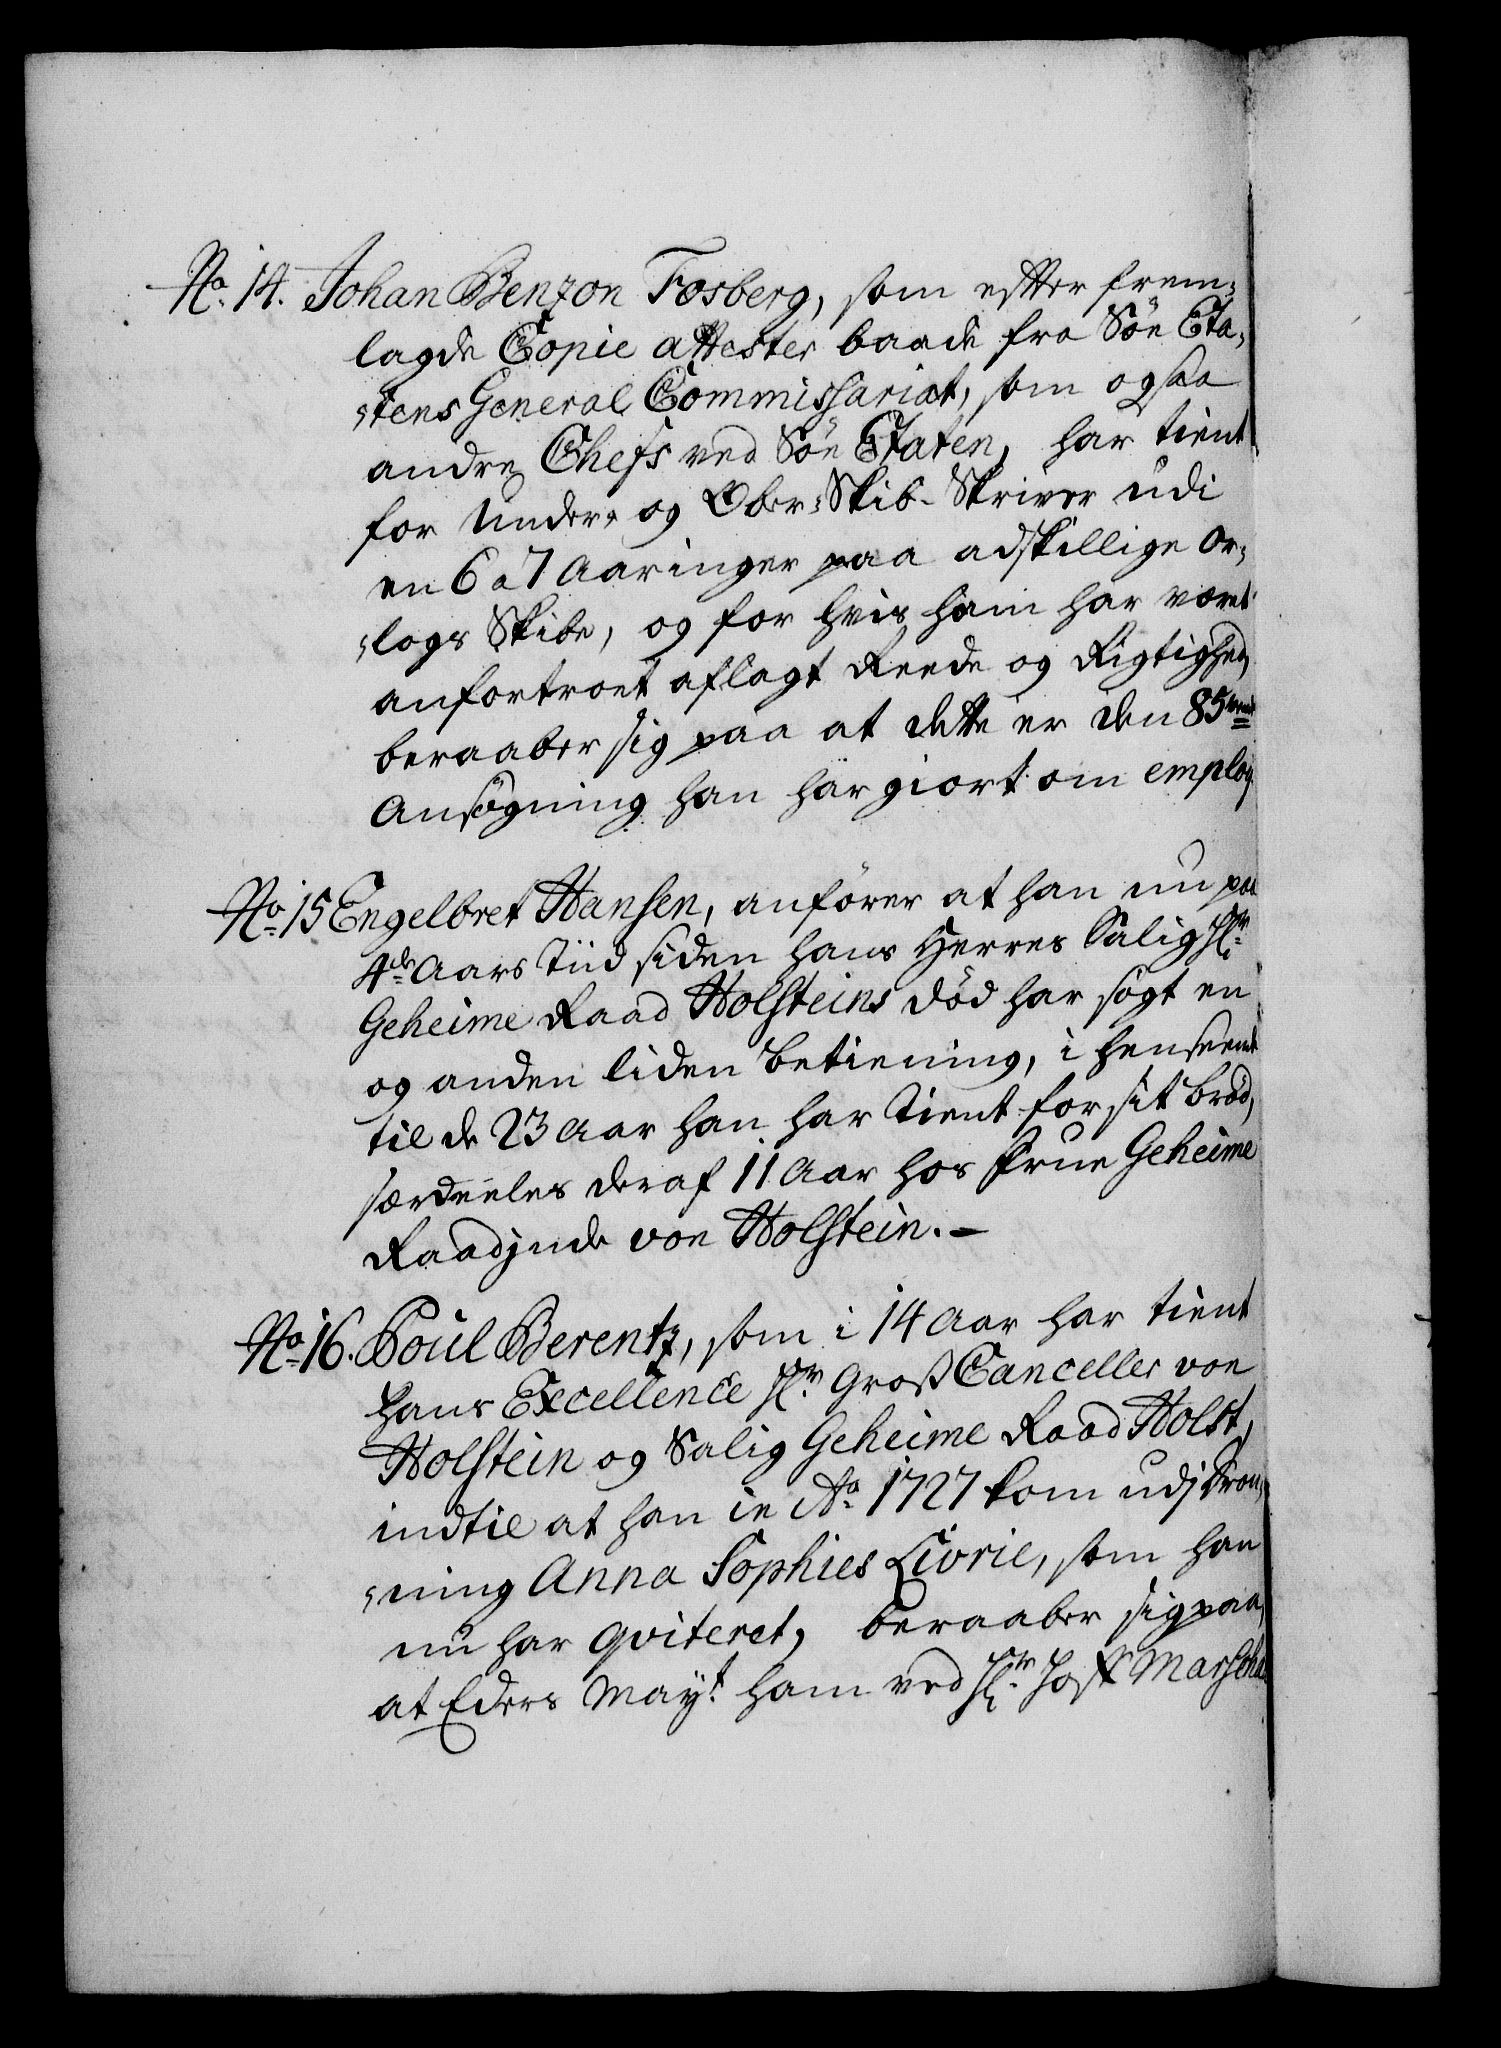 No. 14. Johan Benzon Fosberg, som efter frem-
lagde Copie attester baade fra Söe Eta-
-tens General Commissariat, som ogsaa
andre Chefs ved Söe Etaten, har tient
for Under- og Ober-Skib-Skriver udi
en 6 a 7 Aaringer paa adskillige Or-
-logs Skibe, og for hvis ham har været
anfortroet aflagt Reede og Rigtighed,
beraaber sig paa at dette er den 85
Ansøgning han har giort om employ
No. 15 Engelbret Hansen, anfører at han nu paa
4de Aars Tiid siden hans Herres Salig Hr.
Geheime Raad Holsteins død har søgt en
og anden liden betiening, i henseende
til de 23 Aar han har tient for sit brød,
særdeeles deraf 11 Aar hos Frue Geheime
Raadinde von Holstein.-
No. 16. Poul Berentz, som i 14 Aar har tient
hans Excellence Hr. Groß Canceller von
Holstein og Salig Geheime Raad Holst,
indtil at han in Ao. 1727 kom udj Dron-
-ning Anna Sophies Livrie, som han
nu har qviteret, beraaber sig paa,
at Eders Mayt. ham ved Hr. Hoff Marschal